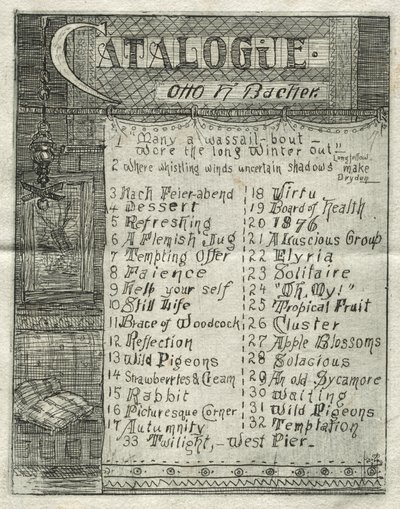 CATALOGUE.
Otto H Bacher
1 "Many a wassail-bout –
Wore the long Winter out"
Longfellow
2 Where whistling winds uncertain shadows make
Dryden
3 Nach Feier-abend
4 Dessert
5 Refreshing
6 A Flemish Jug
7 Tempting Offer
8 Faience
9 Help your self
10 Still Life
11 Brace of Woodcock
12 Reflection
13 Wild Pigeons
14 Strawberries & Cream
15 Rabbit
16 Picturesque Corner
17 Autumnity
18 Virtu
19 Board of Health
20 1876
21 A Luscious Group
22 Elyria
23 Solitaire
24 "Oh, My!"
25 Tropical Fruit
26 Cluster
27 Apple Blossoms
28 Solacious
29 An old Sycamore
30 Waiting
31 Wild Pigeons
32 Temptation
33 Twilight, – West Pier –